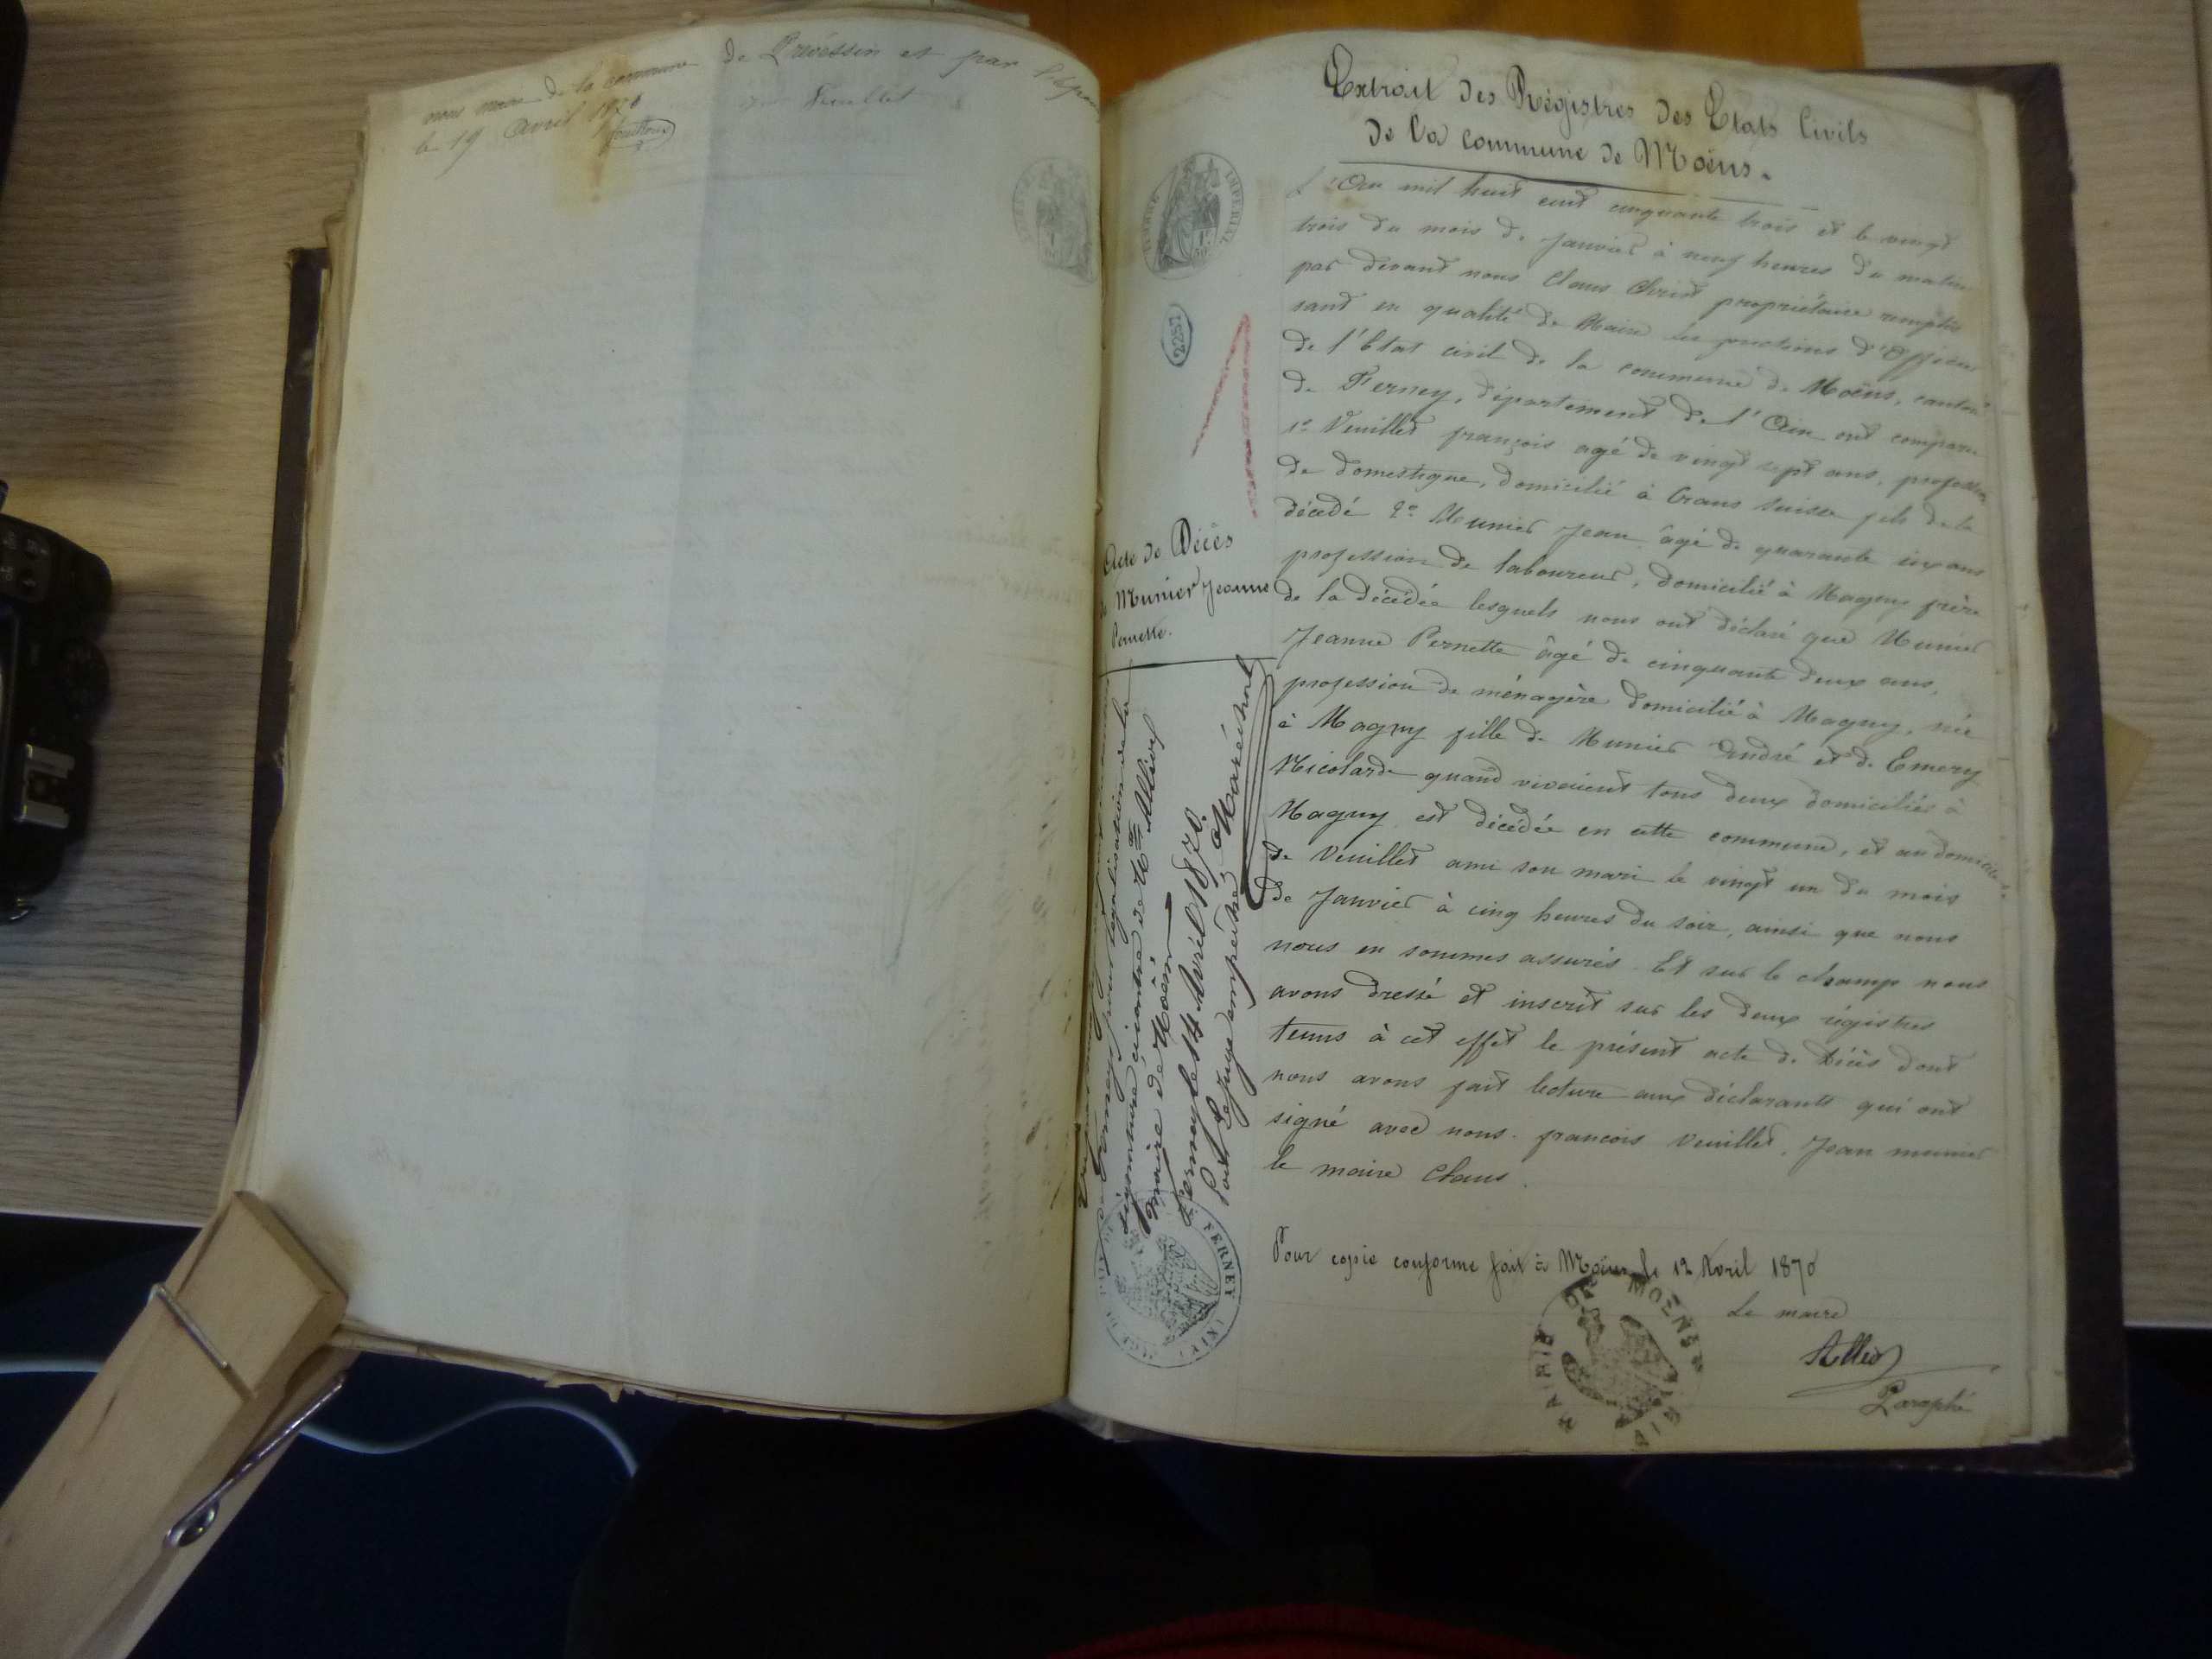 nous maire de la commune de Prévessin et par l'épou
le 19 Avril 1870 Veuillet
Extrait des Régistres des Etats Civils
de la commune de Moëns.
L'An mil huit cent cinquante trois et le vingt
trois du mois de Janvier à neuf heures du matin
par devant nous Claus Christ propriétaire remplis
sant en qualité de Maire les fonctions d'Officier
de l'Etat civil de la commune de Moëns, canton
de Ferney, département de l'Ain ont comparu
1º Veuillet françois agé de vingt sept ans, profession
de domestique, domicilié à Crans Suisse fils de la
décédé 2º Munier Jean âgé de quarante six ans
profession de laboureur, domicilié à Magny frère
de la décédée lesquels nous ont déclaré que Munier
Jeanne Pernette âgé de cinquante deux ans,
profession de ménagère domicilié à Magny, née
à Magny fille de Munier André et de Emery
Nicolarde quand vivaient tous deux domiciliés à
Magny est décédée en cette commune, et au domicile
de Veuillet ami son mari le vingt un du mois
de Janvier à cinq heures du soir, ainsi que nous
nous en sommes assurés. Et sur le champ nous
avons dressé et inscrit sur les deux régistres
tenus à cet effet le présent acte de Décès dont
nous avons fait lecture aux déclarants qui ont
signé avec nous. françois Veuillet, Jean munier
le maire Claus.
Pour copie conforme fait à Moëns le 12 Avril 1870
Le maire
Paraphé
MAIRIE DE MOËNS
AIN
TIMBRE IMPERIAL
2257
Acte de Décès
de Munier Jeanne
Pernette.
de Ferney pour légalisation de la
signature ci contre de Mr
maire de Moëns
Ferney le 14 Avril 1870.
Pour le Juge empêché, Maréchal
FERNEY (AIN)